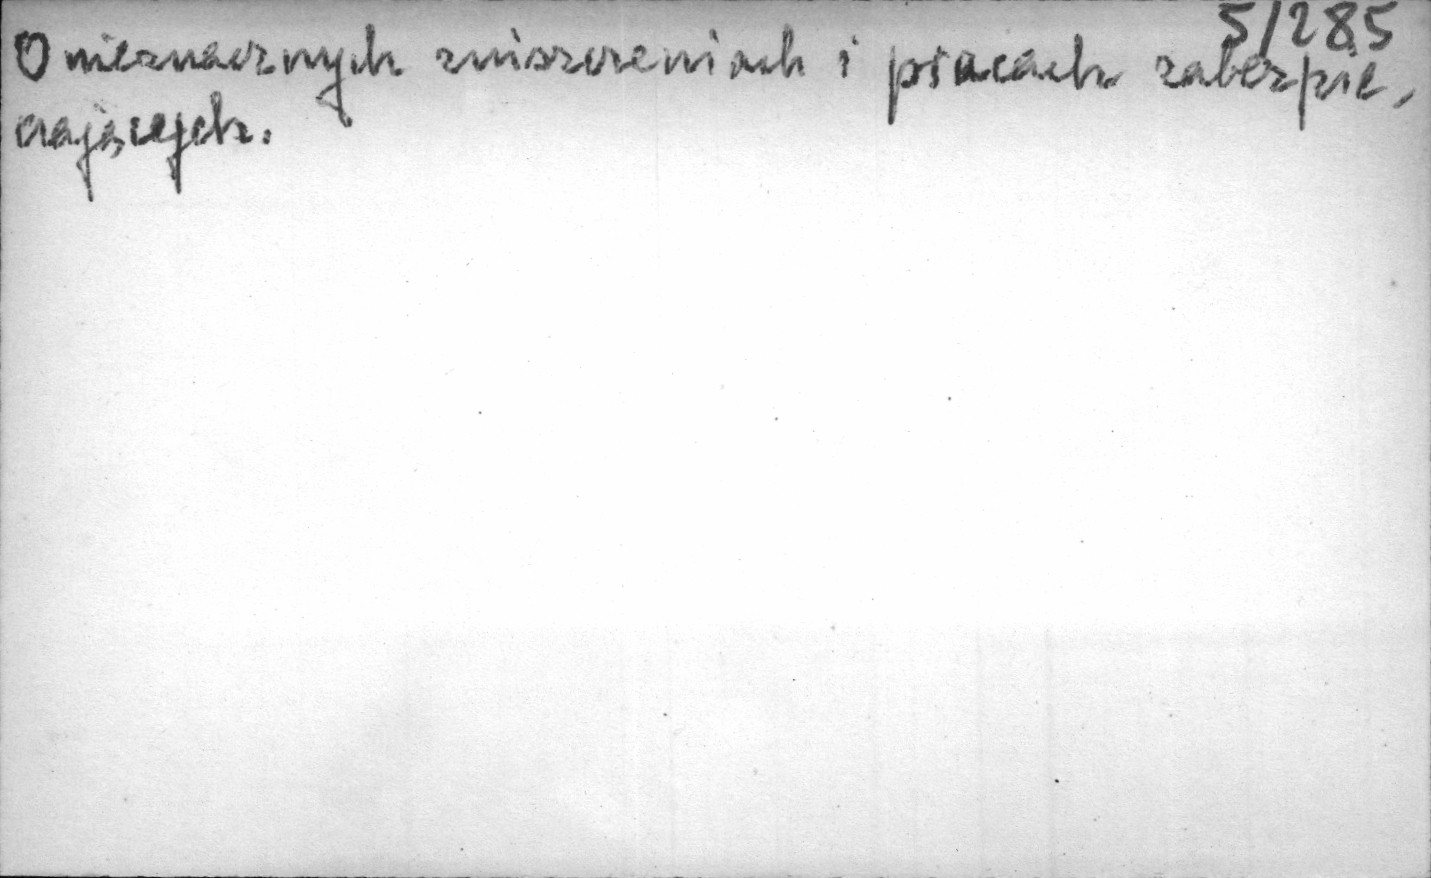 5/285
O nieznacznych zniszczeniach i pracach zabezpie,
czających.